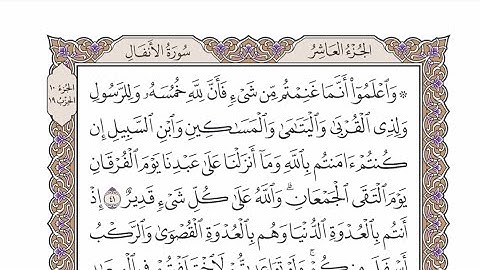 سُورَةُ الأَنفَالِ
الجُزْءُ العَاشِرُ
الجُزءُ ١٠
الحِزْبُ ١٩
۞ وَٱعْلَمُوٓا۟ أَنَّمَا غَنِمْتُم مِّن شَىْءٍ فَأَنَّ لِلَّهِ خُمُسَهُۥ وَلِلرَّسُولِ
وَلِذِى ٱلْقُرْبَىٰ وَٱلْيَتَـٰمَىٰ وَٱلْمَسَـٰكِينِ وَٱبْنِ ٱلسَّبِيلِ إِن
كُنتُمْ ءَامَنتُم بِٱللَّهِ وَمَآ أَنزَلْنَا عَلَىٰ عَبْدِنَا يَوْمَ ٱلْفُرْقَانِ
يَوْمَ ٱلْتَقَى ٱلْجَمْعَانِ ۗ وَٱللَّهُ عَلَىٰ كُلِّ شَىْءٍ قَدِيرٌ ٤١ إِذْ
أَنتُم بِٱلْعُدْوَةِ ٱلدُّنْيَا وَهُم بِٱلْعُدْوَةِ ٱلْقُصْوَىٰ وَٱلرَّكْبُ